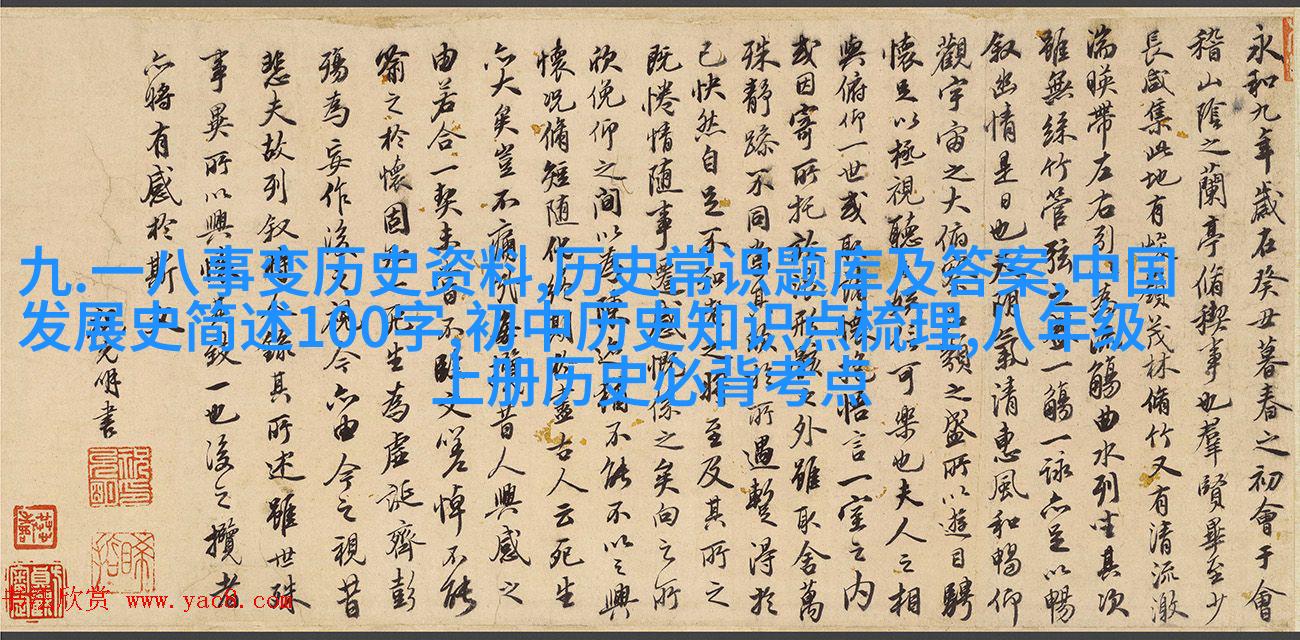 永和九年歲在癸丑暮春之初會于會
稽山陰之蘭亭脩稧事也羣賢畢至少
長咸集此地有
茂林脩竹又有清流激
湍暎帶左右引
流觴曲水列坐其次
雖無絲竹管弦之
一觴一詠亦足以暢
叙幽情是日也天
朗氣清惠風和暢仰
觀宇宙之大俯
類之盛所以遊目騁
懷足以極視聽
可樂也夫人之相
與俯仰一世或取諸懷抱悟言一室之內
或因寄所托放
形骸之外雖取舍萬
殊靜躁不同當其
欣於所遇暫得於
己快然自足不知老之將至及其所之
既惓情隨事遷感慨係之矣向之所
欣俛仰之間以為陳迹猶不能不以之興
懷況脩短隨化終期於盡古人云死生
亦大矣豈不痛哉每攬昔人興感之
由若合一契未嘗不臨文嗟悼不能
喻之於懷固知一死生為虛誕齊彭
殤為妄作後之視今亦由今之視昔
悲夫故列叙時人錄其所述雖世殊
事異所以興懷其致一也後之攬者
亦將有感於斯文
明書
九.一八事变历史资料,历史常识题库及答案,中国
发展史简述100字,初中历史知识点梳理,八年级
上册历史必背考点
书法欣赏 www.yac8.com